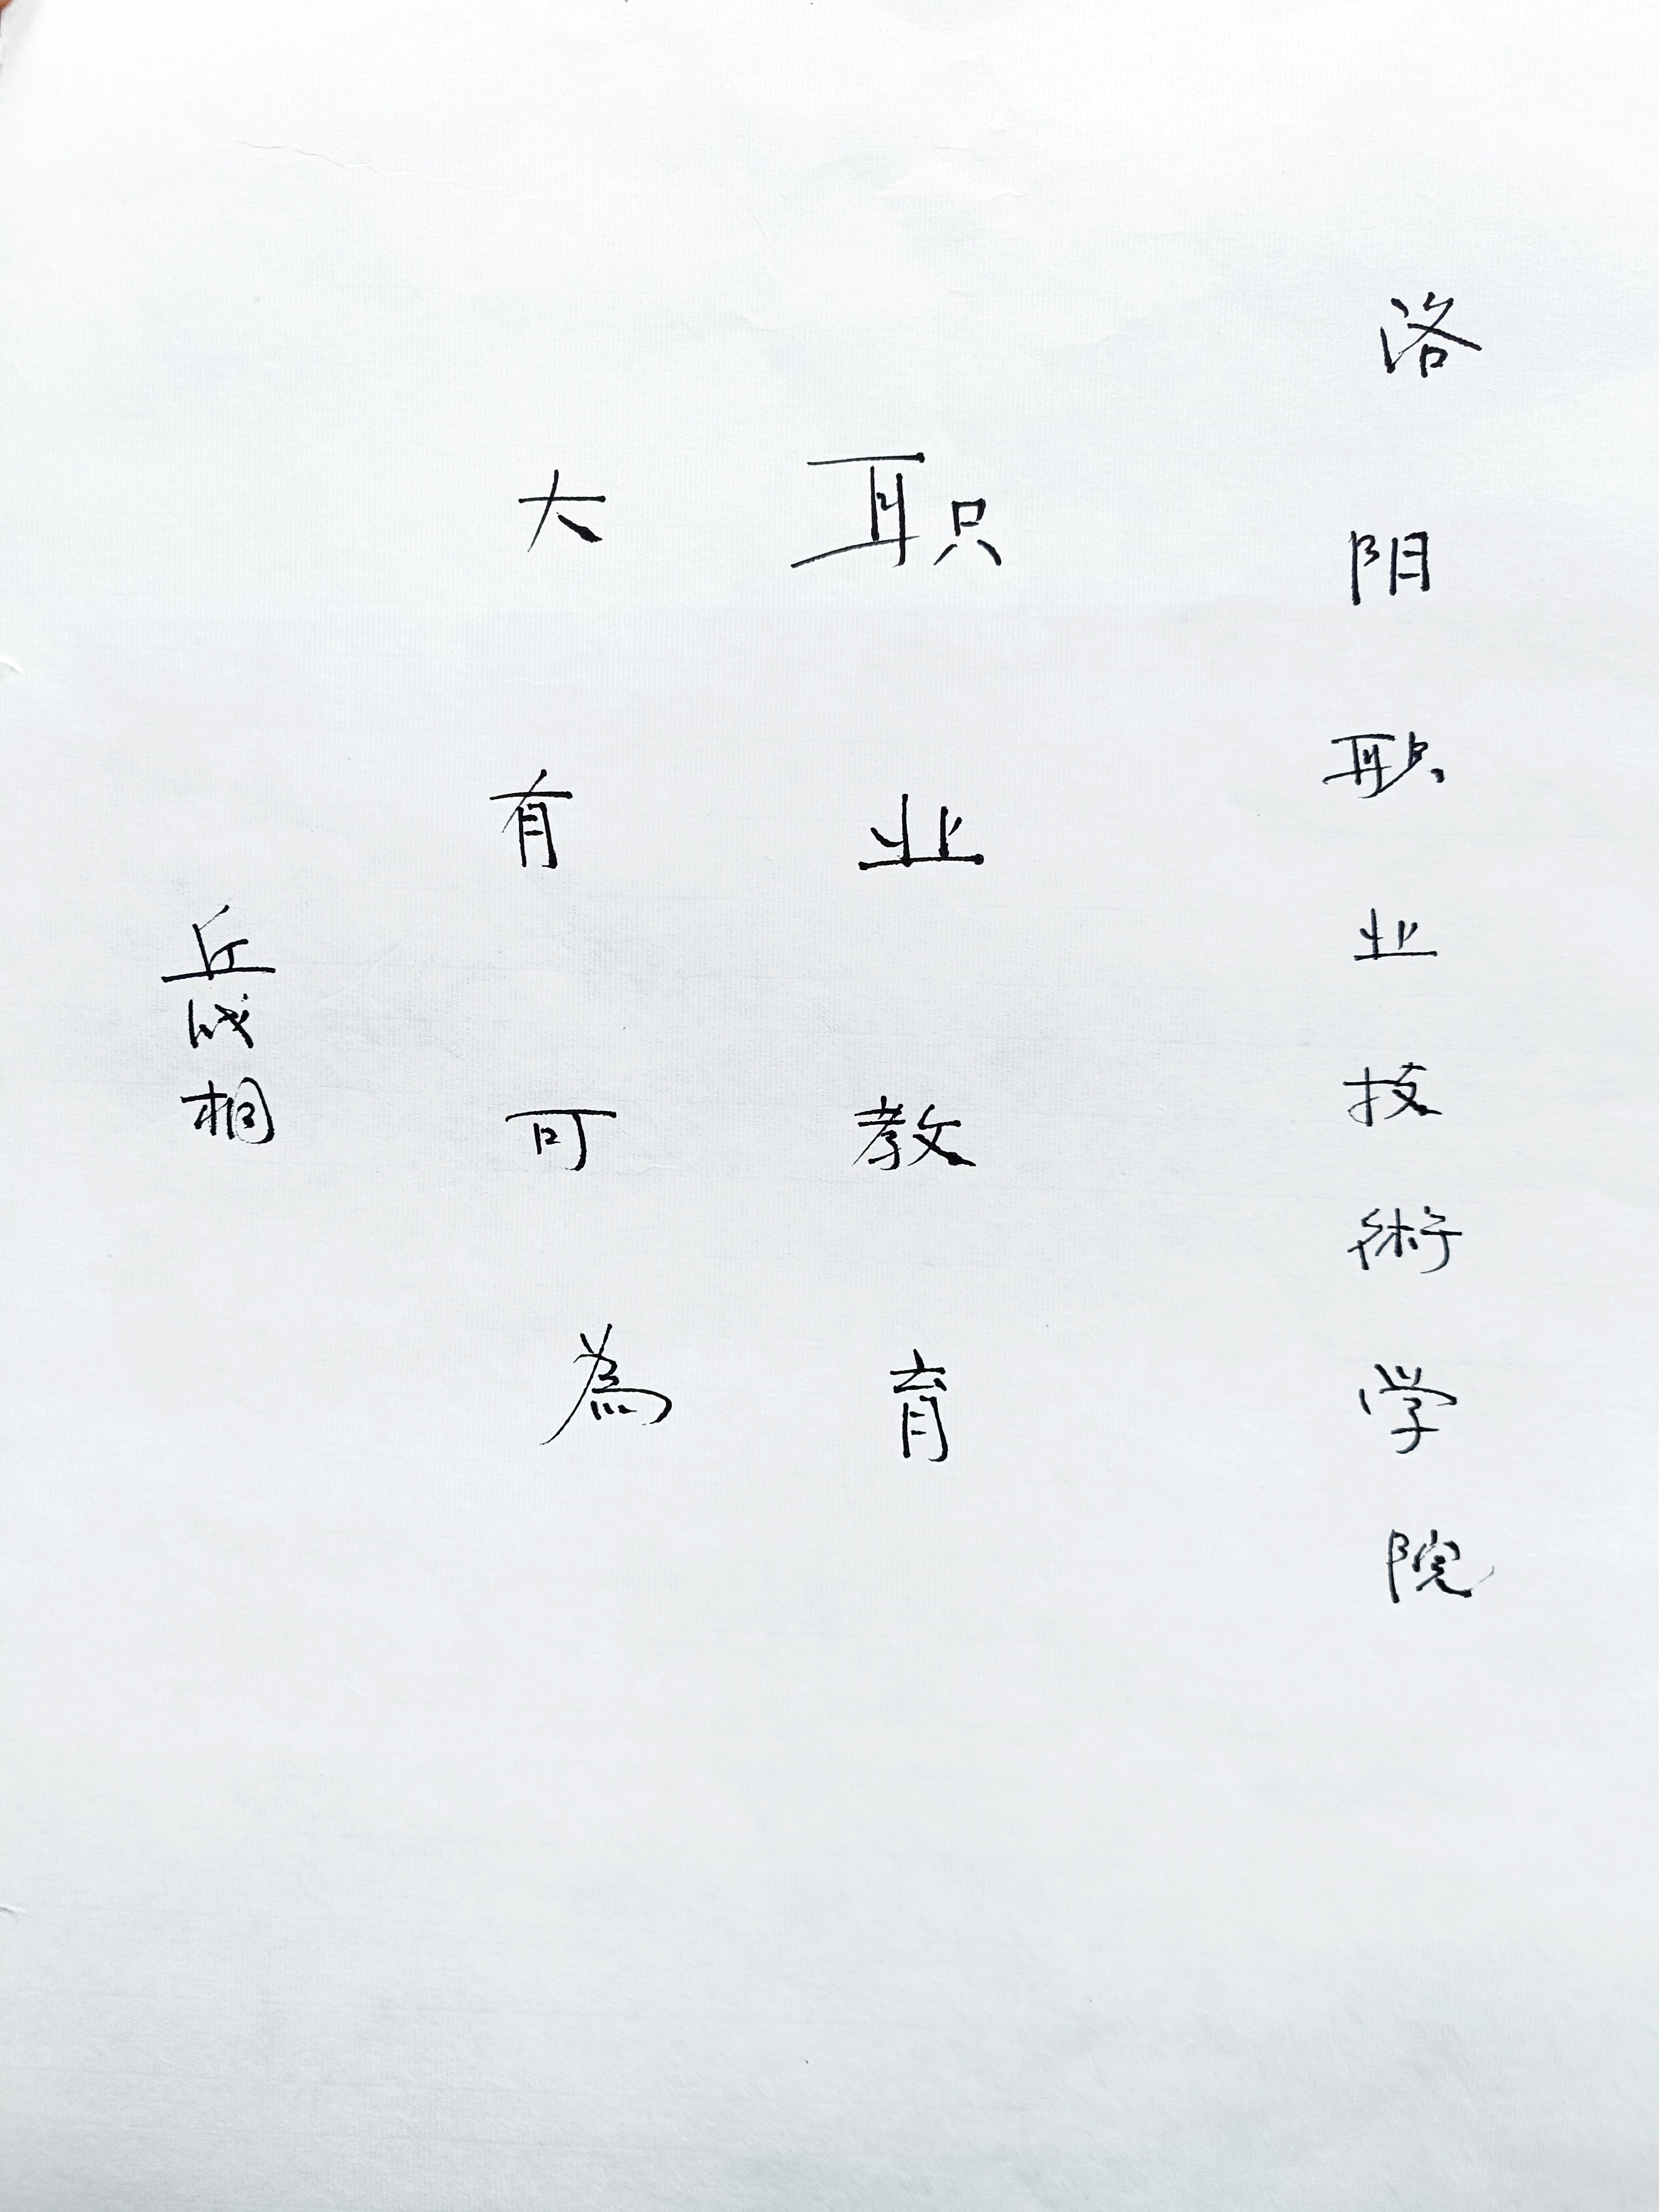 洛阳职业技術学院
职业教育
大有可為
丘成桐